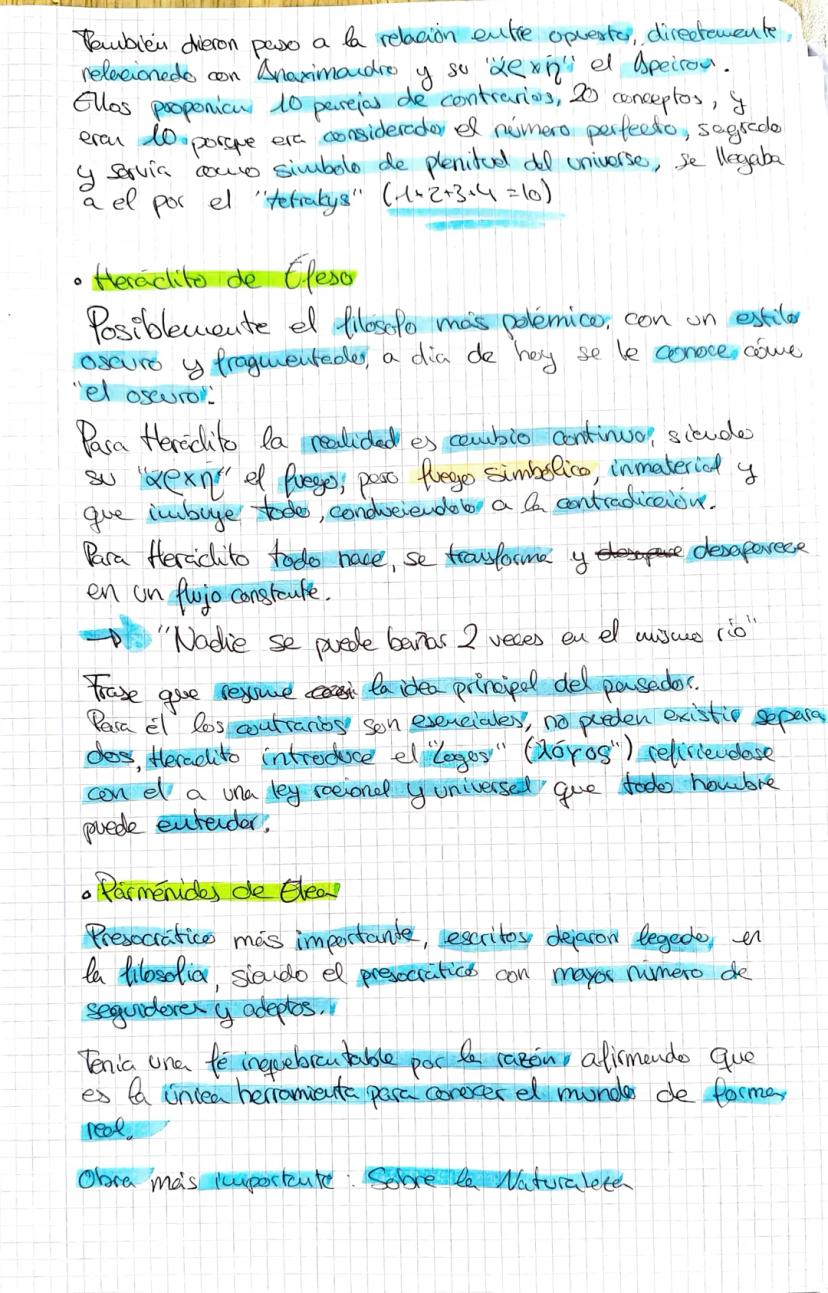 También dieron peso a la relación entre opuesto, directamente
relacionado con Anaximandro y su "αρχη" el Apeiron.
Ellos proponían 10 parejas de contrarios, 20 conceptos, y
eran 10 porque era considerado el número perfecto, sagrado
y servía como símbolo de plenitud del universo, se llegaba
a el por el "tetratkys" (1+2+3+4=10)
• Heráclito de Éfeso
Posiblemente el filósofo más polémico, con un estilo
oscuro y fragmentado, a día de hoy se le conoce cómo
"el oscuro".
Para Heráclito la realidad es cambio continuo, siendo
su "αρχη" el fuego, pero fuego simbólico, inmaterial y
que imbuye todo, conduciendolo a la contradicción.
Para Heráclito todo nace, se transforma y desaparece
en un flujo constante.
→ "Nadie se puede bañar 2 veces en el mismo río"
Frase que resume la idea principal del pensador.
Para él los contrarios son esenciales, no pueden existir separa
dos, Heráclito introduce el "Logos" (λόγος") refiriendose
con el a una ley racional y universal que todo hombre
puede entender.
• Parménides de Elea
Presocrático más importante, escritos dejaron legado, en
la filosofía, siendo el presocrático con mayor número de
seguidores y adeptos.
Tenía una fé inquebrantable por la razón, afirmando que
es la única herramienta para conocer el mundo de forma
real.
Obra más importante: Sobre la Naturaleza